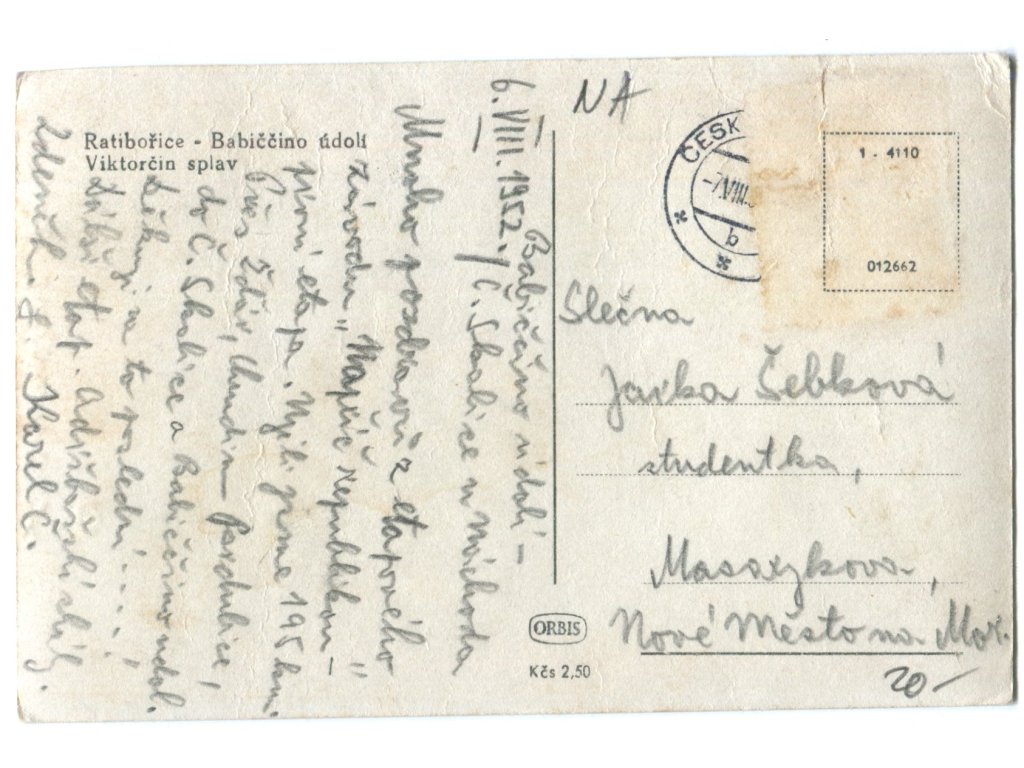 Ratibořice - Babiččino údolí
Viktorčin splav
Babiččino údolí –
6. VIII. 1952. / Č. Skalice u Náchoda
Mnoho pozdravů z etapového
závodu „Napříč republikou –
první etapa. Ujeli jsme 195 km.
Přes Žďár, Chrudim – Pardubice,
do Č. Skalice a Babiččino údol.
Děkuji na to poslední . . . . !
Další etap.
Zdeněk. J. Karel Č.
NA
ČESK
-7.VIII.
b
1 - 4110
012662
Slečna
Jarka Šebková
studentka,
Masarykova,
Nové Město na Mor.
20 –
ORBIS
Kčs 2,50